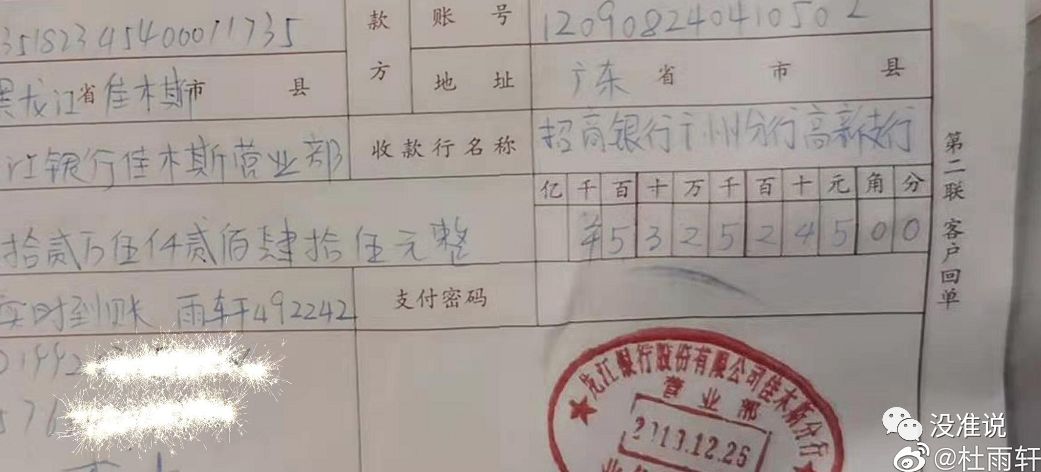 35182345400011735
款方 账号 120908240410502
黑龙江省佳木斯市 县
地址 广东省 市 县
江银行佳木斯营业部
收款行名称 招商银行广州分行高新支行
亿千百十万千百十元角分
拾贰万伍仟贰佰肆拾伍元整
¥532524500
实时到账 雨轩492242
支付密码
01992
576
第二联 客户回单
龙江银行股份有限公司佳木斯分行
营业部
2013.12.26
没准说
@杜雨轩